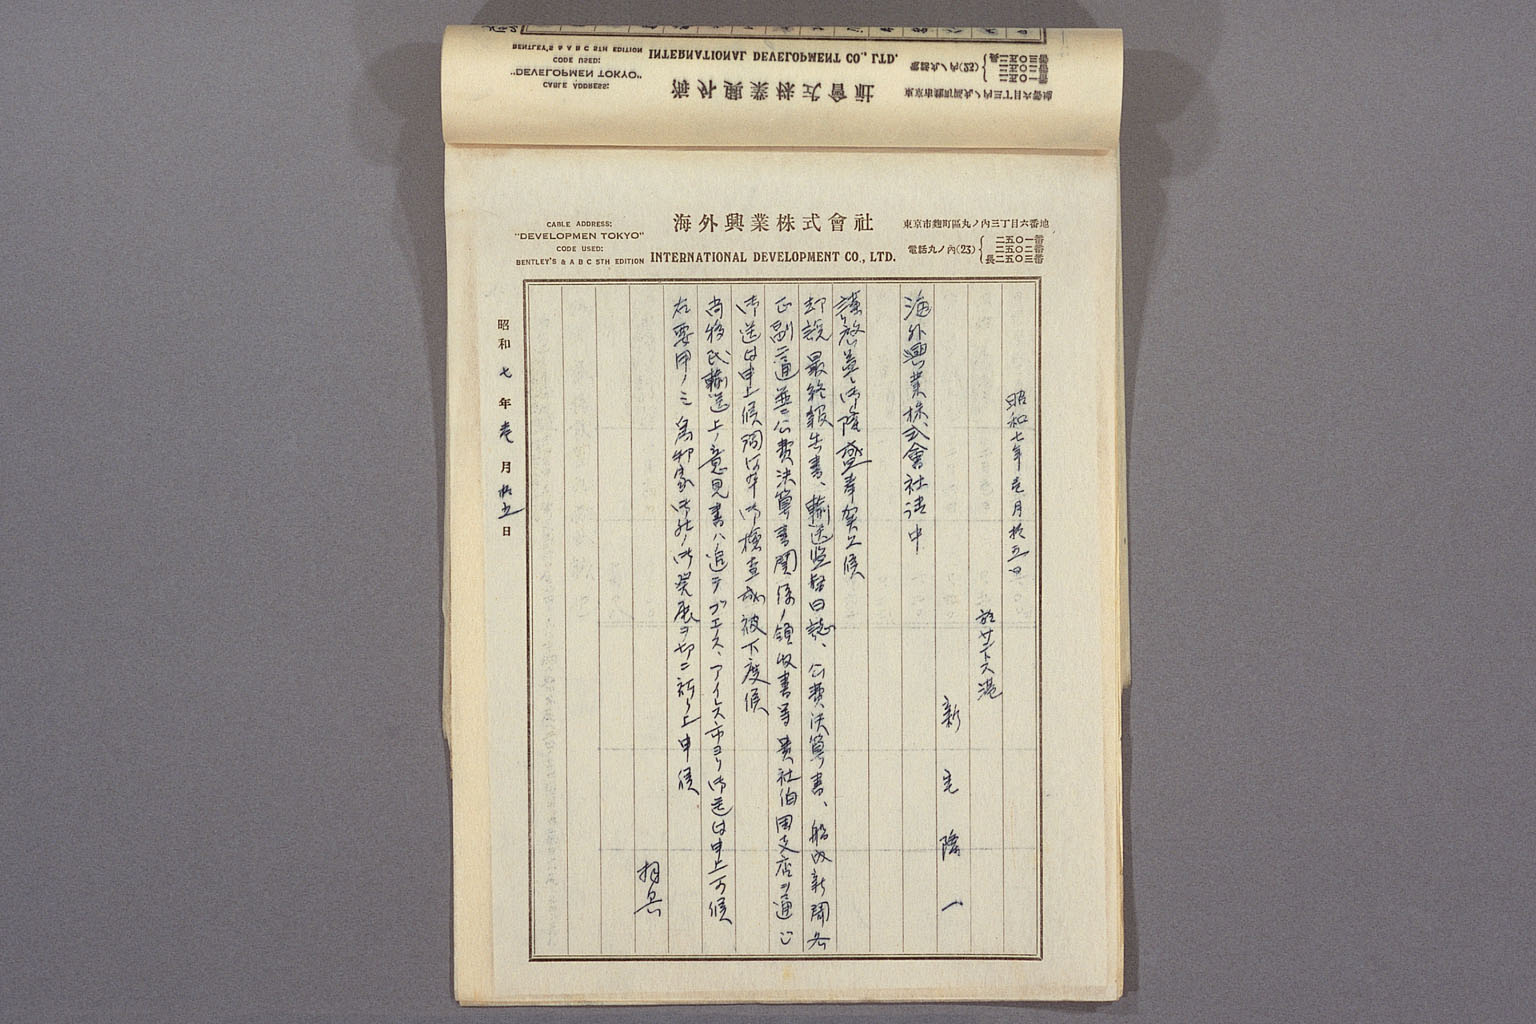 CABLE ADDRESS:
"DEVELOPMEN TOKYO"
CODE USED:
BENTLEY'S & A B C 5TH EDITION
海外興業株式會社
INTERNATIONAL DEVELOPMENT CO., LTD.
東京市麴町區丸ノ內三丁目六番地
電話丸ノ內(23)
二五〇一番
二五〇二番
長二五〇三番
昭和七年壱月拾五日
於サントス港
新毛隆一
海外興業株式會社御中
謹啓益々御隆盛奉賀上候
却説最終報告書、輸送監督日誌、公費決算書、船内新聞各
正副二通並ニ公費決算書関係ノ領収書等貴社伯国支店ヲ通じ
御送付申上候間何卒御検査被下度候
尚移民輸送上ノ意見書ハ追テブエノス、アイレス市ヨリ御送付申上可候
右要用ノミ
御発展ヲ切ニ祈リ上申候
拝具
昭和七年壱月拾五日
海外興業株式會社
INTERNATIONAL DEVELOPMENT CO., LTD.
CABLE ADDRESS:
"DEVELOPMEN TOKYO"
CODE USED:
BENTLEY'S & A B C 5TH EDITION